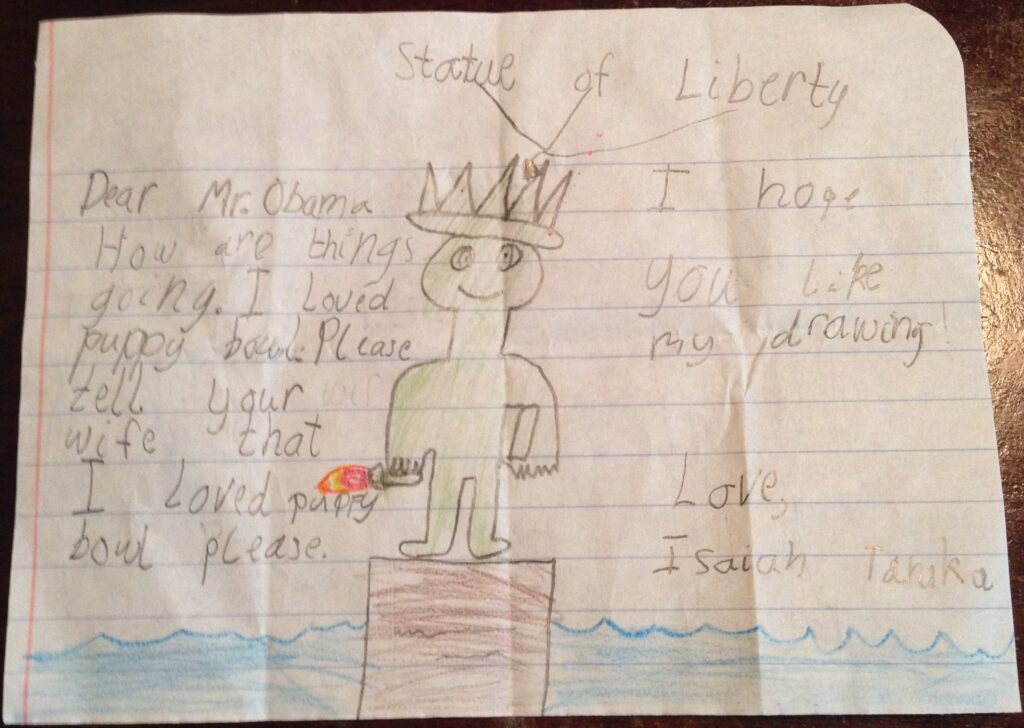 Statue of Liberty
Dear Mr. Obama
How are things
going. I Loved
puppy bowl. Please
tell your
wife that
I Loved puppy
bowl please.
I hope
you like
my drawing!
Love,
Isaiah Tanaka